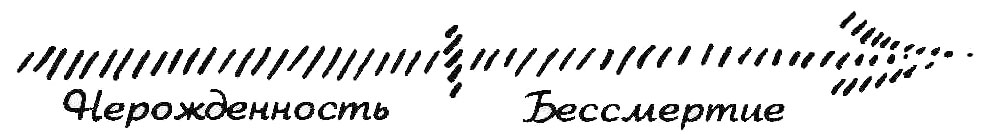 Нерожденность Бессмертие